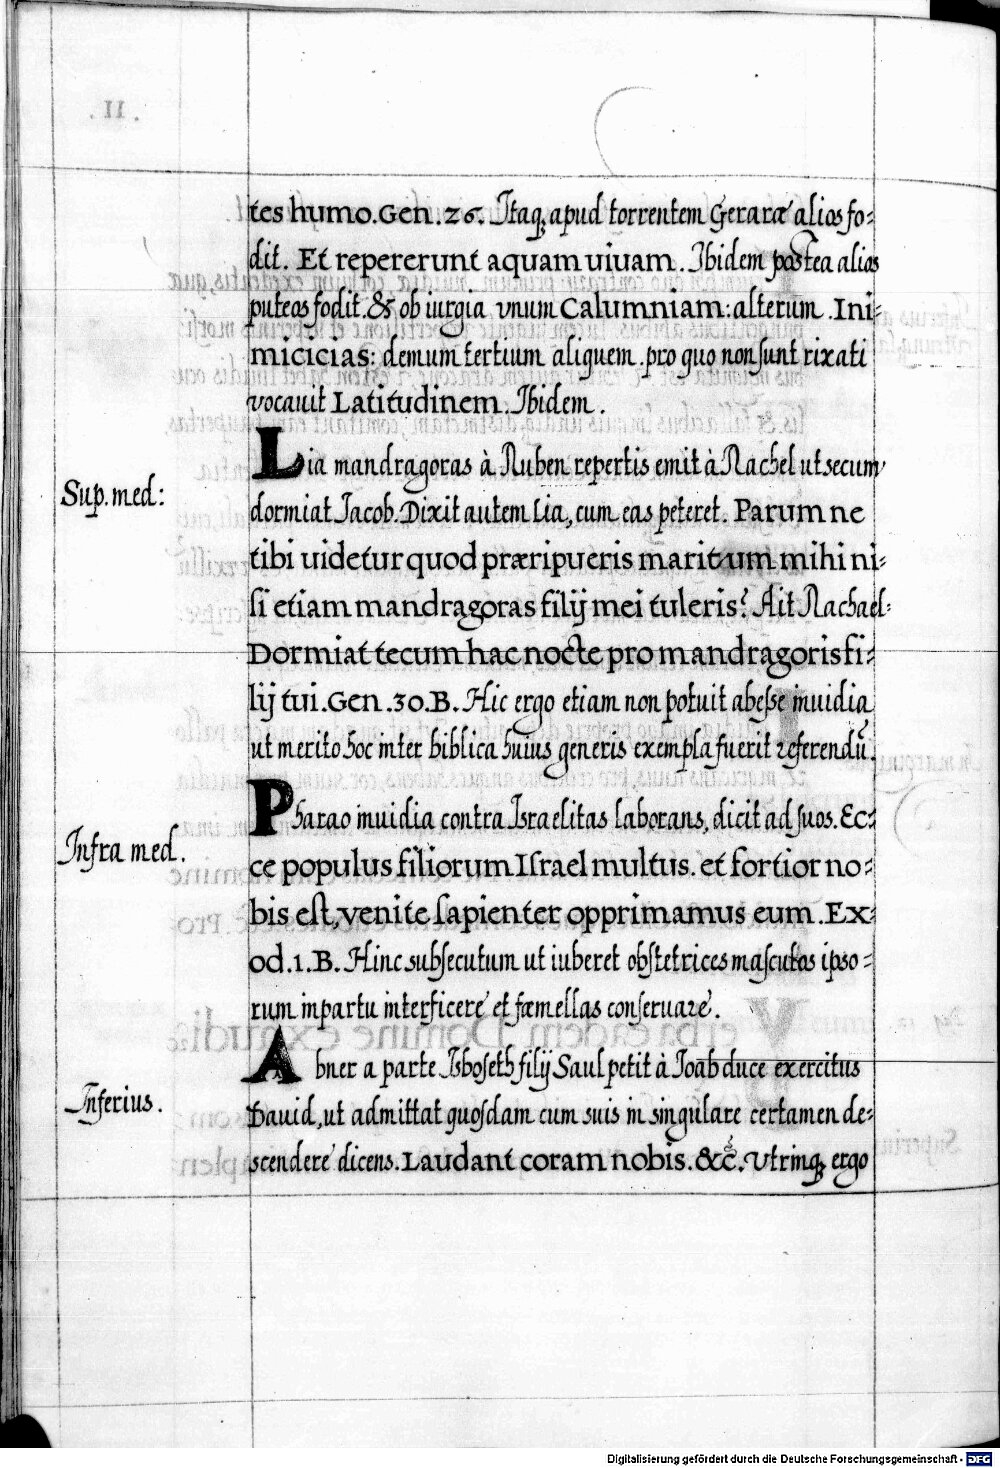 tes humo. Gen. 26. Itaq; apud torrentem Gerarae alios fo-
dit. Et repererunt aquam uiuam. Ibidem postea alios
puteos fodit. & ob iurgia vnum Calumniam: alterum. Ini-
micicias: demum tertium aliquem. pro quo non sunt rixati
vocauit Latitudinem. Ibidem.
Sup. med:
Lia mandragoras à Ruben repertis emit à Rachel ut secum
dormiat Jacob. Dixit autem Lia, cum eas peteret. Parum ne
tibi uidetur quod præripueris maritum mihi ni-
si etiam mandragoras filij mei tuleris? Ait Rachael-
Dormiat tecum hac nocte pro mandragoris fi-
lij tui. Gen. 30. B. Hic ergo etiam non potuit abesse inuidia
ut merito hoc inter biblica huius generis exempla fuerit referendū.
Infra med.
Pharao inuidia contra Israelitas laborans, dicit ad suos. Ec-
ce populus filiorum Israel multus. et fortior no-
bis est, venite sapienter opprimamus eum. Ex-
od. 1. B. Hinc subsecutum ut iuberet obstetrices masculos ipso-
rum in partu interficere et fœmellas conseruare.
Inferius.
Abner a parte Isboseth filij Saul petit à Joab duce exercitus
Dauid, ut admittat quosdam cum suis in singulare certamen de-
scendere dicens. Laudant coram nobis. &c. Vtrinq; ergo
. II .
Digitalisierung gefördert durch die Deutsche Forschungsgemeinschaft - DFG